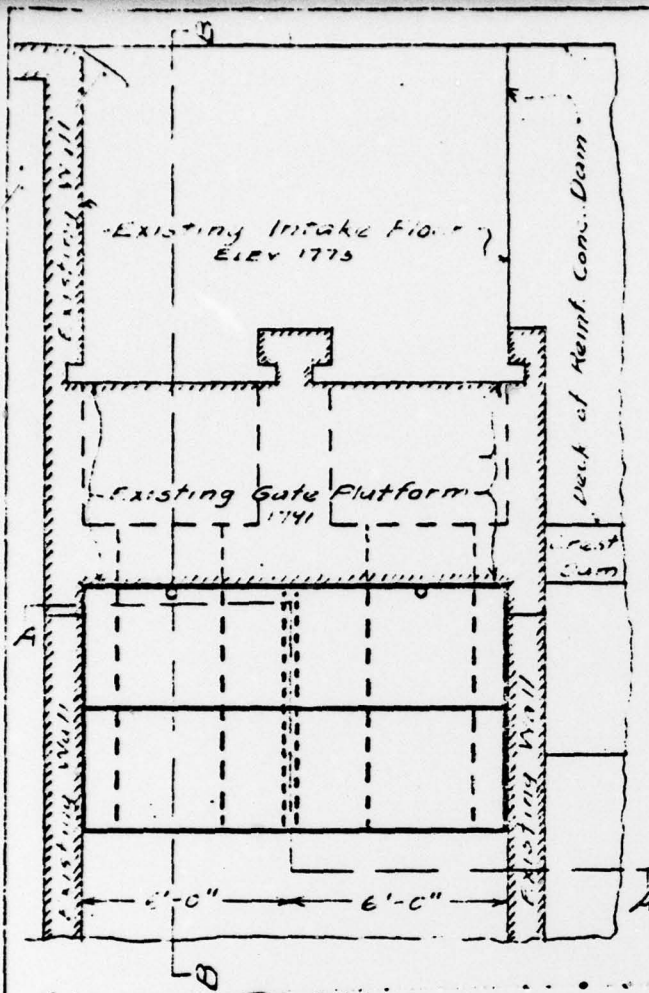 B
Existing Wall
Existing Intake Floor
ELEV 1773
Deck of Reinf. Conc. Dam
Existing Gate Platform
1741
Crest
Dam
A
Existing Wall
Existing Wall
6'-0"
6'-0"
A
B